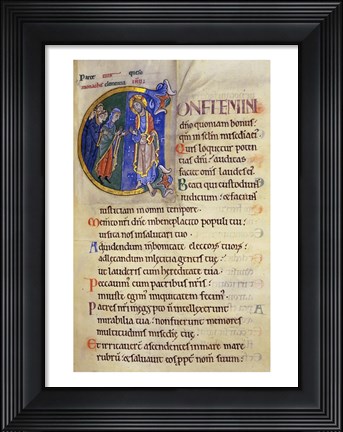 Parce tuis queso
monachis clementia IHU
CONFITEMINI
dño quoniam bonus:
qm in sclm misericdia ei
Quis loquetur poten
tias dñi: auditas
faciet omīs laudes ei
Beati qui custodiunt
iudicium: & faciunt
iusticiam in omni tempore
Memento nri dñe in beneplacito populi tui:
uisita nos in salutari tuo
Ad uidendum in bonitate electorũ tuorũ:
ad letandum in leticia gentis tuę:
ut lauderis cum hereditate tua
Peccauim cum patribus nris:
iniuste egim iniquitatem fecim
Patres nri in egypto ñ intellexerunt
mirabilia tua: non fuerunt memores
multitudinis misedię tuę
Et irritauerẽ ascendentes in mare mare
rubrũ: & saluauit eos ppt nom̃ suum: